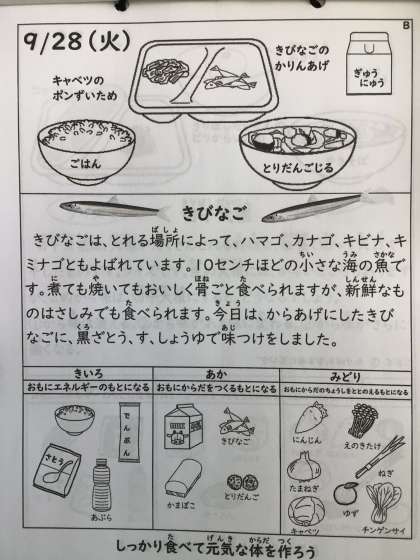 B
9/28(火)
きびなごの
かりんあげ
ぎゅう
にゅう
キャベツの
ポンずいため
ごはん
とりだんごじる
きびなご
きびなごは、とれる場所によって、ハマゴ、カナゴ、キビナ、キ
ミナゴともよばれています。10センチほどの小さな海の魚で
す。煮ても焼いてもおいしく骨ごと食べられますが、新鮮なも
のはさしみでも食べられます。今日は、からあげにしたきび
なごに、黒ざとう、す、しょうゆで味つけをしました。
きいろ
おもにエネルギーのもとになる
でんぷん
さとう
あぶら
あか
おもにからだをつくるもとになる
きびなご
かまぼこ
とりだんご
みどり
おもにからだのちょうしをととのえるもとになる
にんじん
えのきたけ
ねぎ
たまねぎ
ゆず
キャベツ
チンゲンサイ
しっかり食べて元気な体を作ろう